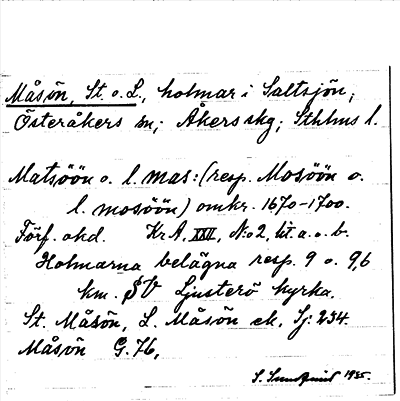 Måsön, St. o. L., holmar i Saltsjön;
Österåkers sn; Åkers skg; Sthlms l.
Matsöön o. l. mas: (resp. Mosöön o.
l. mosöön) omkr. 1670-1700.
Förf. okd. Kr A. XXII, No 2, lit. a. o. b.
Holmarna belägna resp. 9 o. 9,6
km. SV Ljusterö kyrka.
St. Måsön, L. Måsön ek, Sj. 234.
Måsön G. 76,
S. Sundquist 1935.